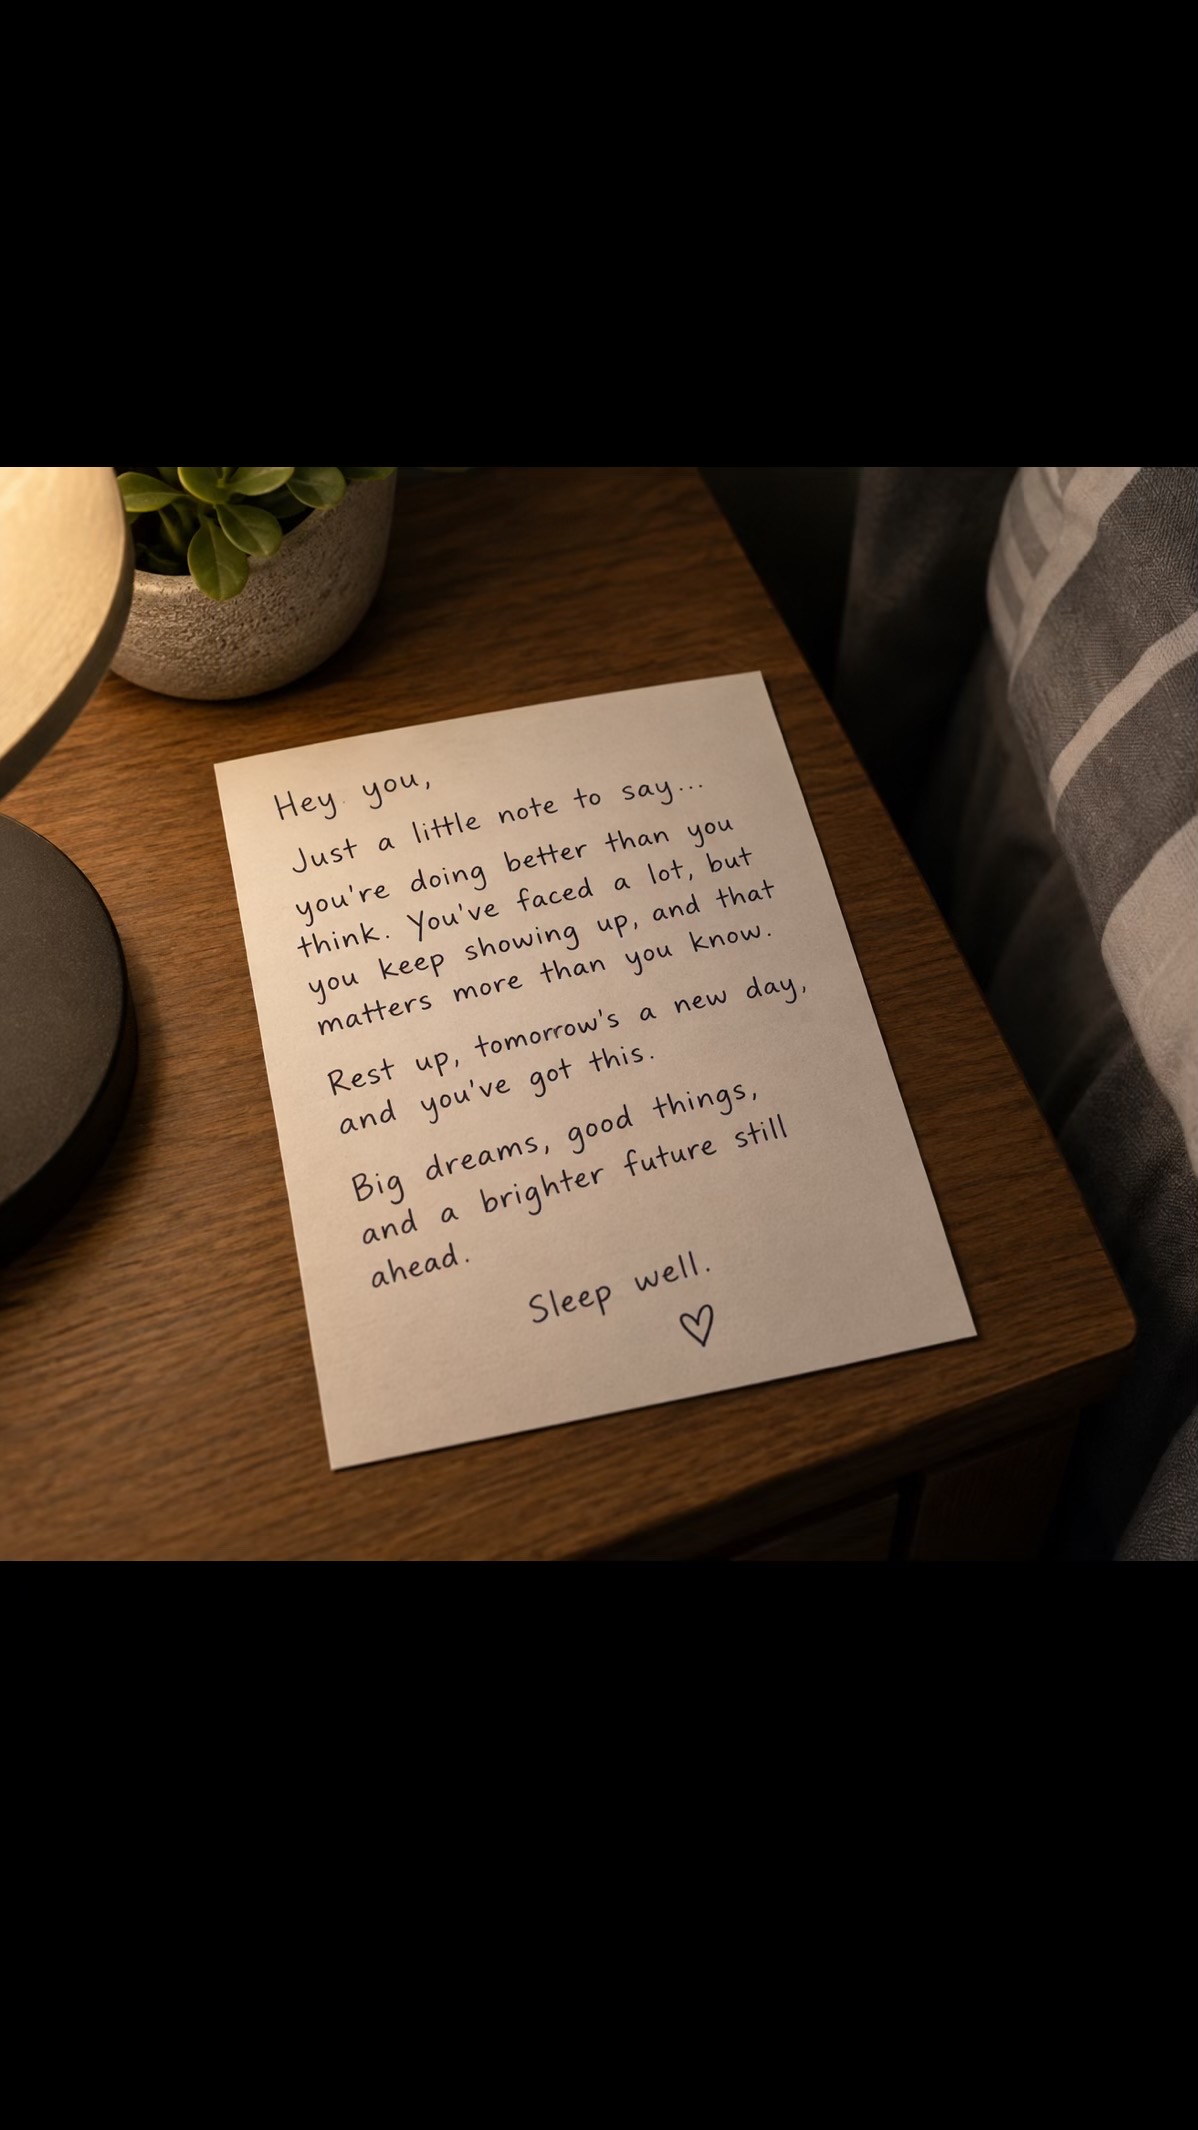 Hey you,
Just a little note to say...
you're doing better than you
think. You've faced a lot, but
you keep showing up, and that
matters more than you know.
Rest up, tomorrow's a new day,
and you've got this.
Big dreams, good things,
and a brighter future still
ahead.
Sleep well.
♡